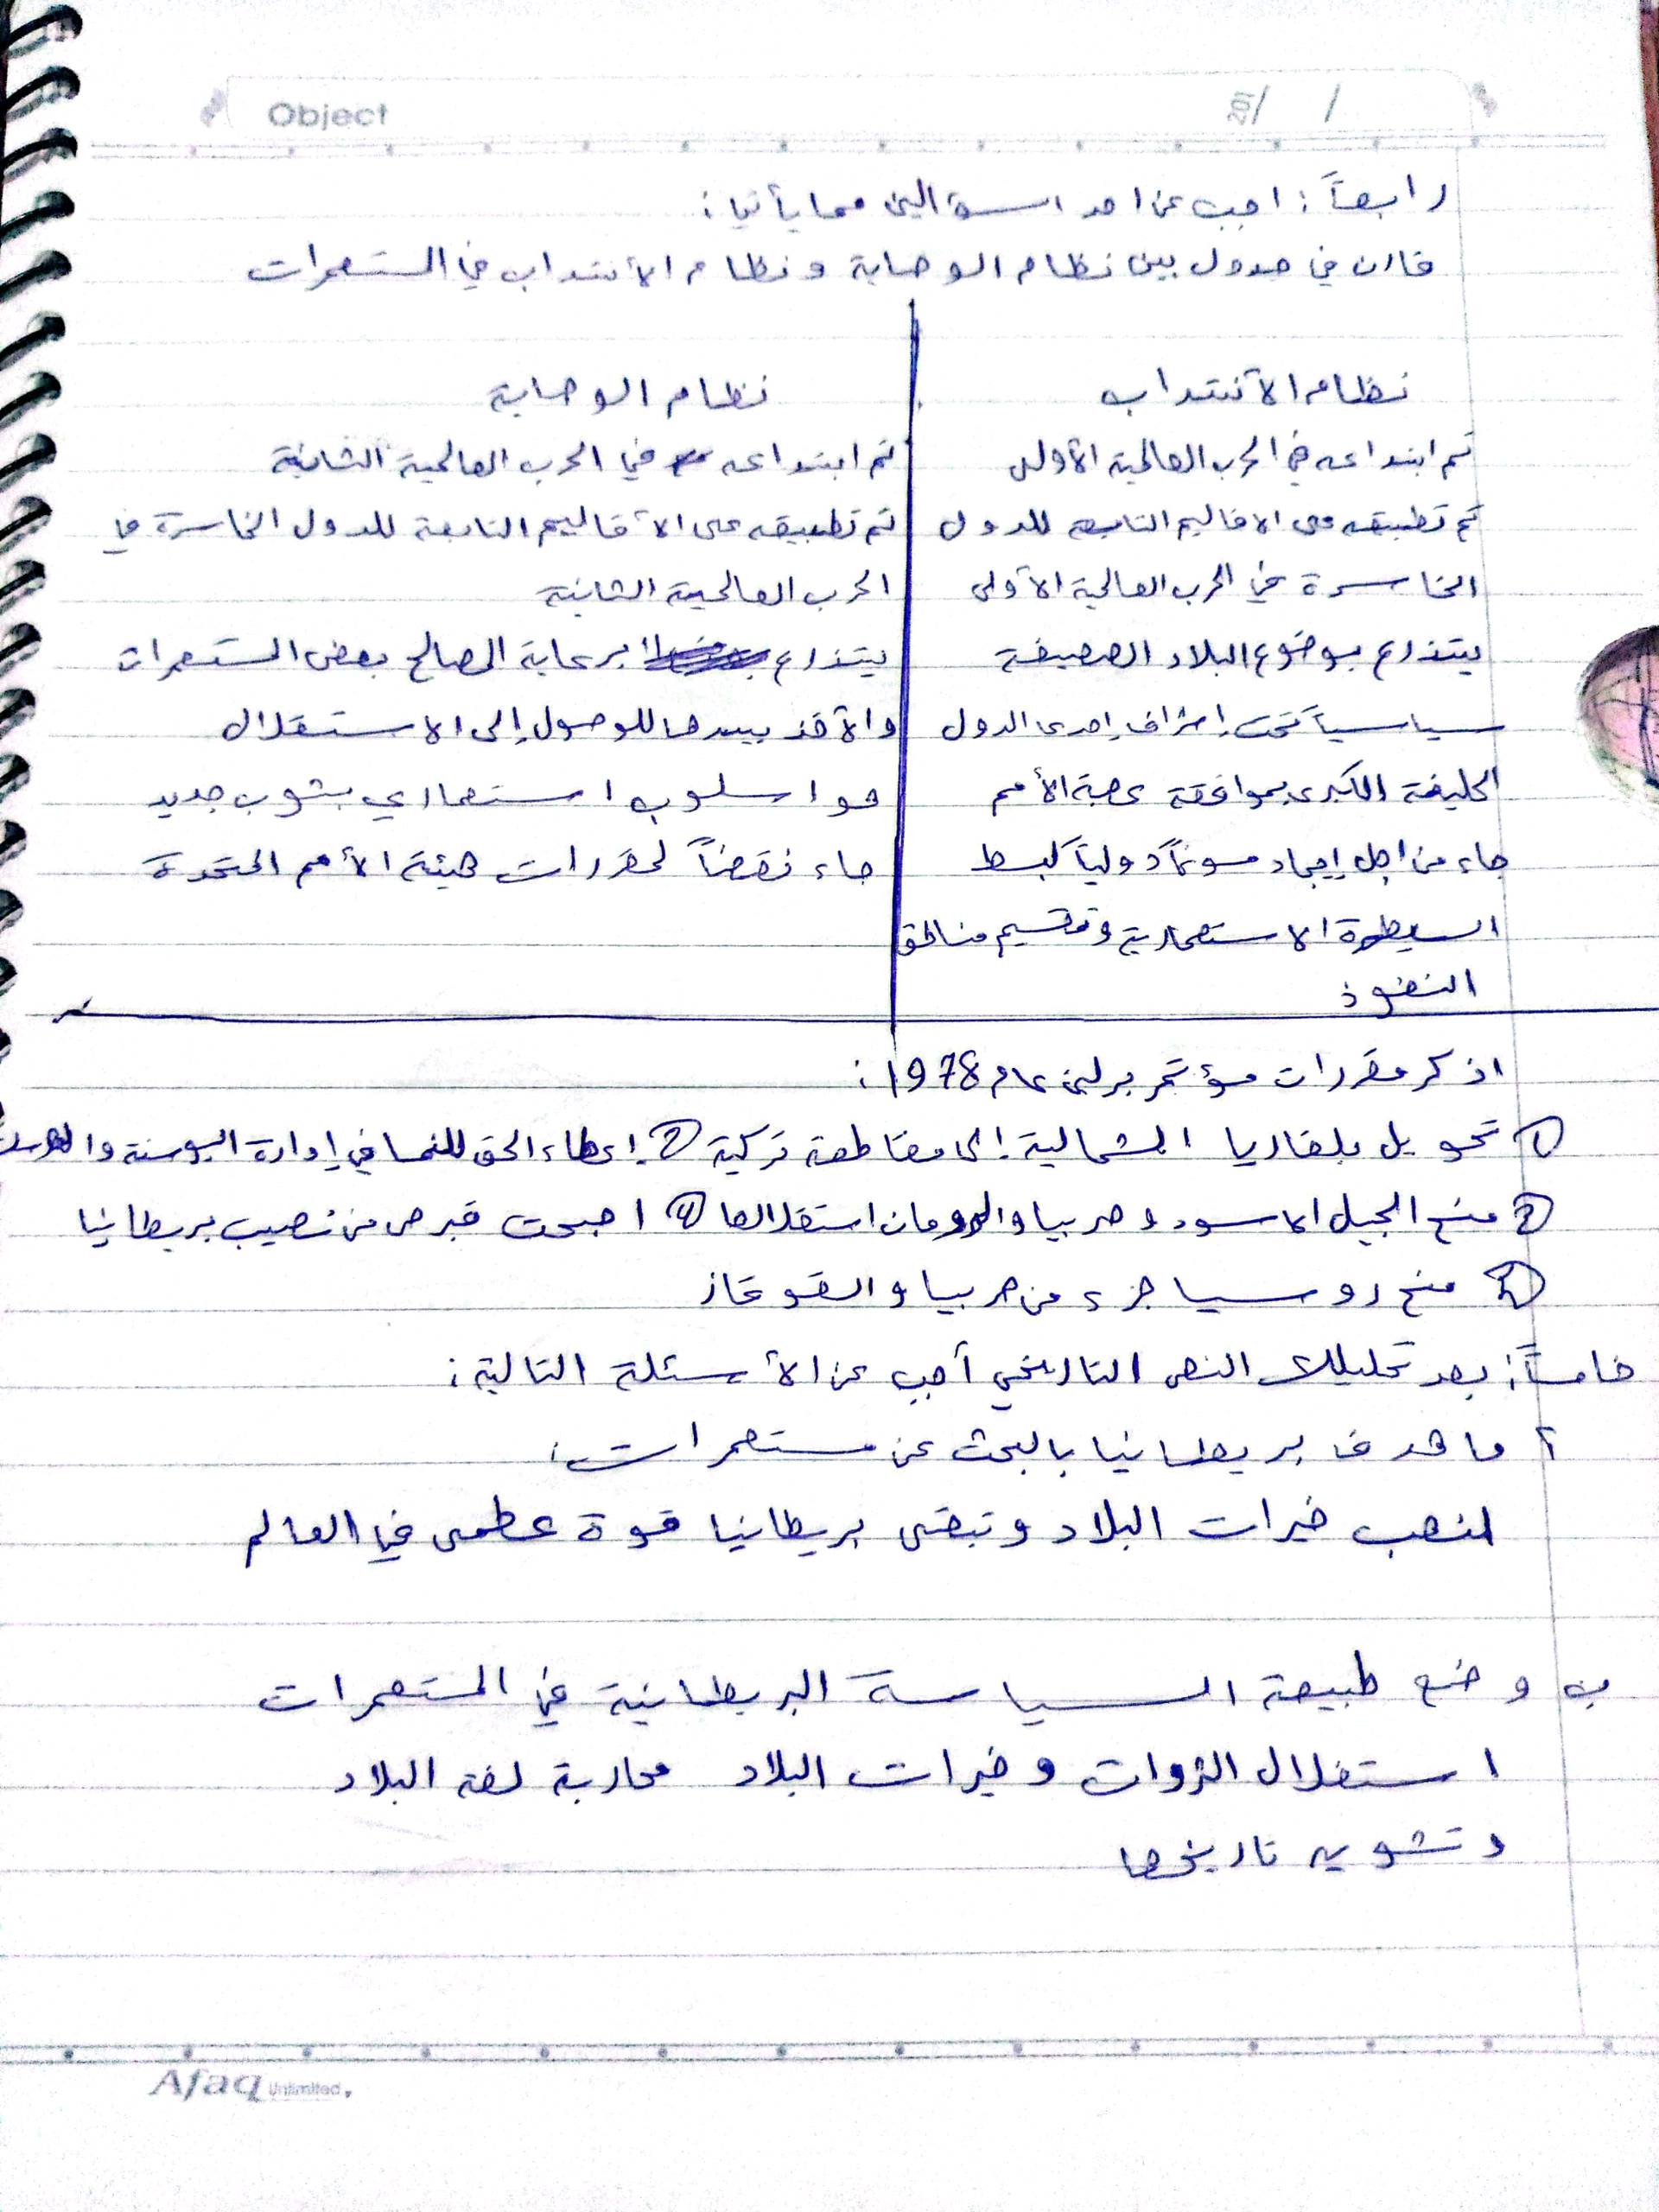 Object
/ / 201
رابعاً: اجب عن احد السؤالين مما يأتي:
قارن في جدول بين نظام الوصاية ونظام الأنتداب في المستعمرات
نظام الأنتداب
تم ابتداعه في الحرب العالمية الأولى
تم تطبيقه على الاقاليم التابعة للدول
الخاسرة في الحرب العالمية الأولى
يتذرع بوضوع البلاد الضعيفة
سياسياً تحت إشراف إحدى الدول
الحليفة الكبرى بموافقة عصبة الأمم
جاء من اجل إيجاد مسوغاً دولياً لبسط
السيطرة الاستعمارية وتقسيم مناطق
النفوذ
نظام الوصاية
تم ابتداعه في الحرب العالمية الثانية
تم تطبيقه على الأقاليم التابعة للدول الخاسرة في
الحرب العالمية الثانية
يتذرع برعاية المصالح بعض المستعمرات
والأخذ بيدها للوصول إلى الاستقلال
هو اسلوب استعماري بثوب جديد
جاء نقضاً لمقررات هيئة الأمم المتحدة
اذكر مقررات مؤتمر برلين عام 1978:
1 تحويل بلغاريا الشمالية إلى مقاطعة تركية 2 إعطاء الحق للنمسا في إدارة البوسنة والهرسك
3 منح الجبل الاسود وصربيا والرومان استقلالها 4 اصبحت قبرص من نصيب بريطانيا
5 منح روسيا جزء من صربيا والقوقاز
خامساً: بعد تحليلك النص التاريخي أجب عن الأسئلة التالية:
أ ما هدف بريطانيا بالبحث عن مستعمرات:
لنهب خيرات البلاد وتبقى بريطانيا قوة عظمى في العالم
ب وضح طبيعة السياسة البريطانية في المستعمرات
استغلال الثروات وخيرات البلاد محاربة لغة البلاد
وتشويه تاريخها
Afaq Unlimited.